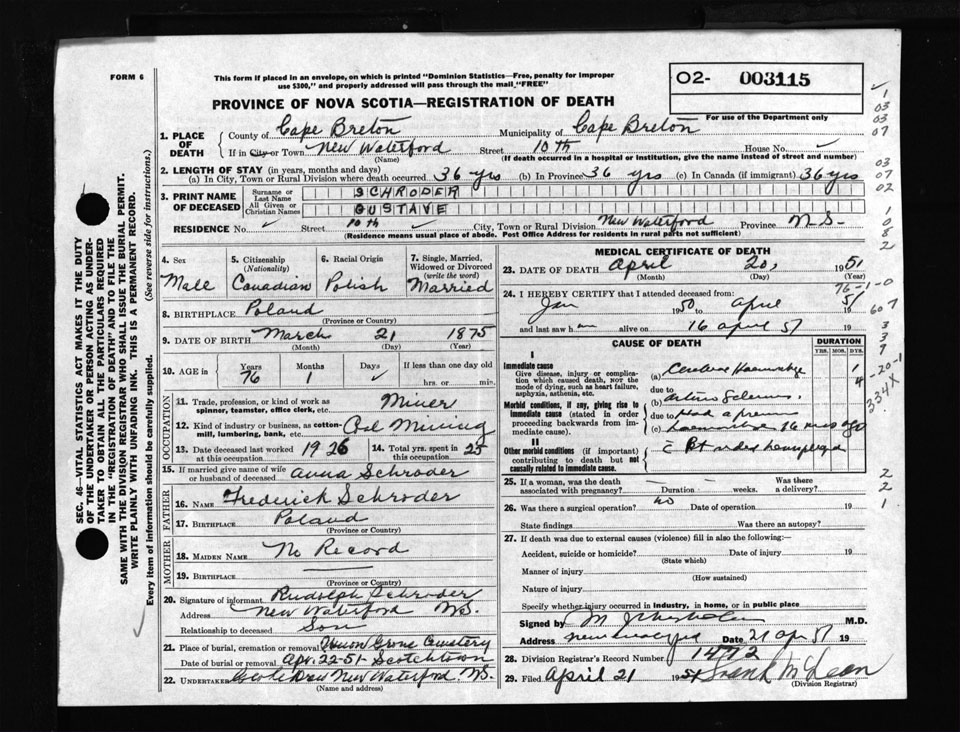 FORM 6
This form if placed in an envelope, on which is printed "Dominion Statistics—Free, penalty for improper
use $300," and properly addressed will pass through the mail "FREE"
02- 003115
For use of the Department only
PROVINCE OF NOVA SCOTIA—REGISTRATION OF DEATH
1. PLACE OF DEATH
County of Cape Breton Municipality of Cape Breton
If in City or Town New Waterford Street 10th House No.
(Name) (If death occurred in a hospital or institution, give the name instead of street and number)
2. LENGTH OF STAY (in years, months and days)
(a) In City, Town or Rural Division where death occurred 36 yrs (b) In Province 36 yrs (c) In Canada (if immigrant) 36 yrs
3. PRINT NAME OF DECEASED
Surname or Last Name SCHRODER
All Given or Christian Names GUSTAVE
RESIDENCE No. Street 10th City, Town or Rural Division New Waterford Province N.S.
(Residence means usual place of abode. Post Office Address for residents in rural parts not sufficient)
4. Sex
Male
5. Citizenship
(Nationality)
Canadian
6. Racial Origin
Polish
7. Single, Married,
Widowed or Divorced
(write the word)
Married
8. BIRTHPLACE Poland
(Province or Country)
9. DATE OF BIRTH March 21 1875
(Month) (Day) (Year)
10. AGE in Years Months Days If less than one day old
76 1 hrs. or min.
OCCUPATION
11. Trade, profession, or kind of work as
spinner, teamster, office clerk, etc. Miner
12. Kind of industry or business, as cotton-
mill, lumbering, bank, etc. Coal Mining
13. Date deceased last worked
at this occupation 1926
14. Total yrs. spent in
this occupation 25
15. If married give name of wife
or husband of deceased Anna Schroder
FATHER
16. Name Frederick Schroder
17. Birthplace Poland
(Province or Country)
MOTHER
18. MAIDEN NAME No Record
19. BIRTHPLACE
(Province or Country)
20. Signature of informant Rudolph Schroder
Address New Waterford N.S.
Relationship to deceased Son
21. Place of burial, cremation or removal Union Grove Cemetery
Date of burial or removal Apr. 22-51 Scotchtown
22. UNDERTAKER New Waterford N.S.
(Name and address)
MEDICAL CERTIFICATE OF DEATH
23. DATE OF DEATH April 20, 1951
(Month) (Day) (Year)
76-1-0
24. I HEREBY CERTIFY that I attended deceased from:
Jan 1950 to April 51 19
and last saw h im alive on 16 April 51 19
CAUSE OF DEATH
DURATION
YRS. MOS. DYS.
I
Immediate cause
Give disease, injury or complica-
tion which caused death, NOT the
mode of dying, such as heart failure,
asphyxia, asthenia, etc.
(a) Cerebral Haemorrhage 4
due to
Morbid conditions, if any, giving rise to
immediate cause (stated in order
proceeding backwards from im-
mediate cause).
(b)
due to Had a
(c) haemorrhage 16 mos ago
II
Other morbid conditions (if important)
contributing to death but not
causally related to immediate cause.
25. If a woman, was the death
associated with pregnancy? Duration weeks. Was there
a delivery?
26. Was there a surgical operation? no Date of operation 19
State findings Was there an autopsy?
27. If death was due to external causes (violence) fill in also the following:—
Accident, suicide or homicide? Date of injury 19
(State which)
Manner of injury
(How sustained)
Nature of injury
Specify whether injury occurred in industry, in home, or in public place
Signed by M.D.
Address Date 21 Apr 51 19
28. Division Registrar's Record Number 1472
29. Filed April 21 1951 Frank McLean
(Division Registrar)
SEC. 46—VITAL STATISTICS ACT MAKES IT THE DUTY
OF THE UNDERTAKER OR PERSON ACTING AS UNDER-
TAKER TO OBTAIN ALL THE PARTICULARS REQUIRED
IN THE "REGISTRATION OF DEATH" AND TO FILE THE
SAME WITH THE DIVISION REGISTRAR WHO SHALL ISSUE THE BURIAL PERMIT.
WRITE PLAINLY WITH UNFADING INK. THIS IS A PERMANENT RECORD.
Every item of information should be carefully supplied. (See reverse side for instructions.)
1
03
03
07
03
07
02
1
0
8
2
607
3
3
7
-20-1
334X
2
2
1